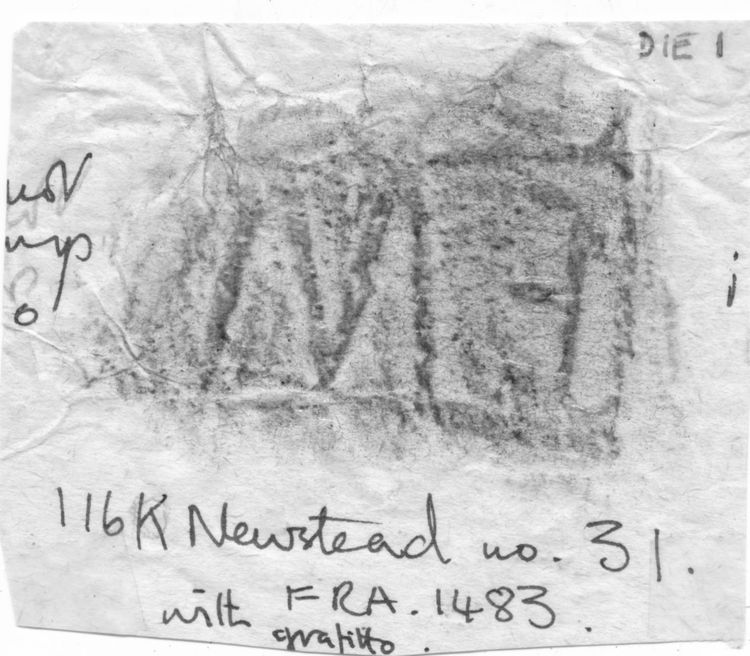 DIE 1
not
i
116K Newstead no. 31.
with FRA. 1483.
grafitto.